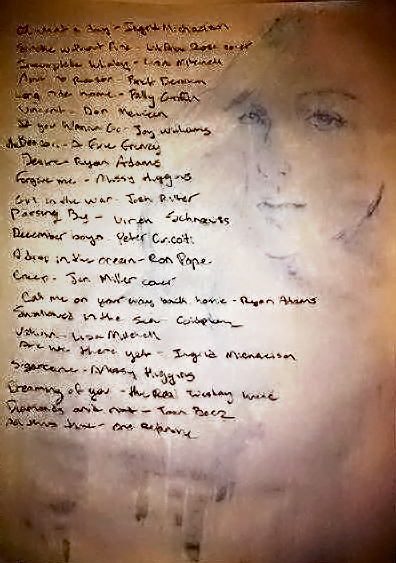 Oh what a day - Ingrid Michaelson
Smoke without Fire - cover
Incomplete - Lisa Mitchell
- Patrick
Long ride home - Patty Griffin
Vincent - Don McLean
If you Wanna Go - Jay Williams
- A Fine Frenzy
Desire - Ryan Adams
Forgive me - Missy Higgins
Girl in the war - Josh Ritter
Passing By -
December boys - Peter
A drop in the ocean - Ron Pope
Creep - Jen Miller cover
Call me on your way back home - Ryan Adams
Swallowed in the Sea - Coldplay
- Lisa Mitchell
Are we there yet - Ingrid Michaelson
Sugarcane - Missy Higgins
Dreaming of you - the Real Tuesday Weld
Diamonds and rust - Joan Baez
All this time - One Republic